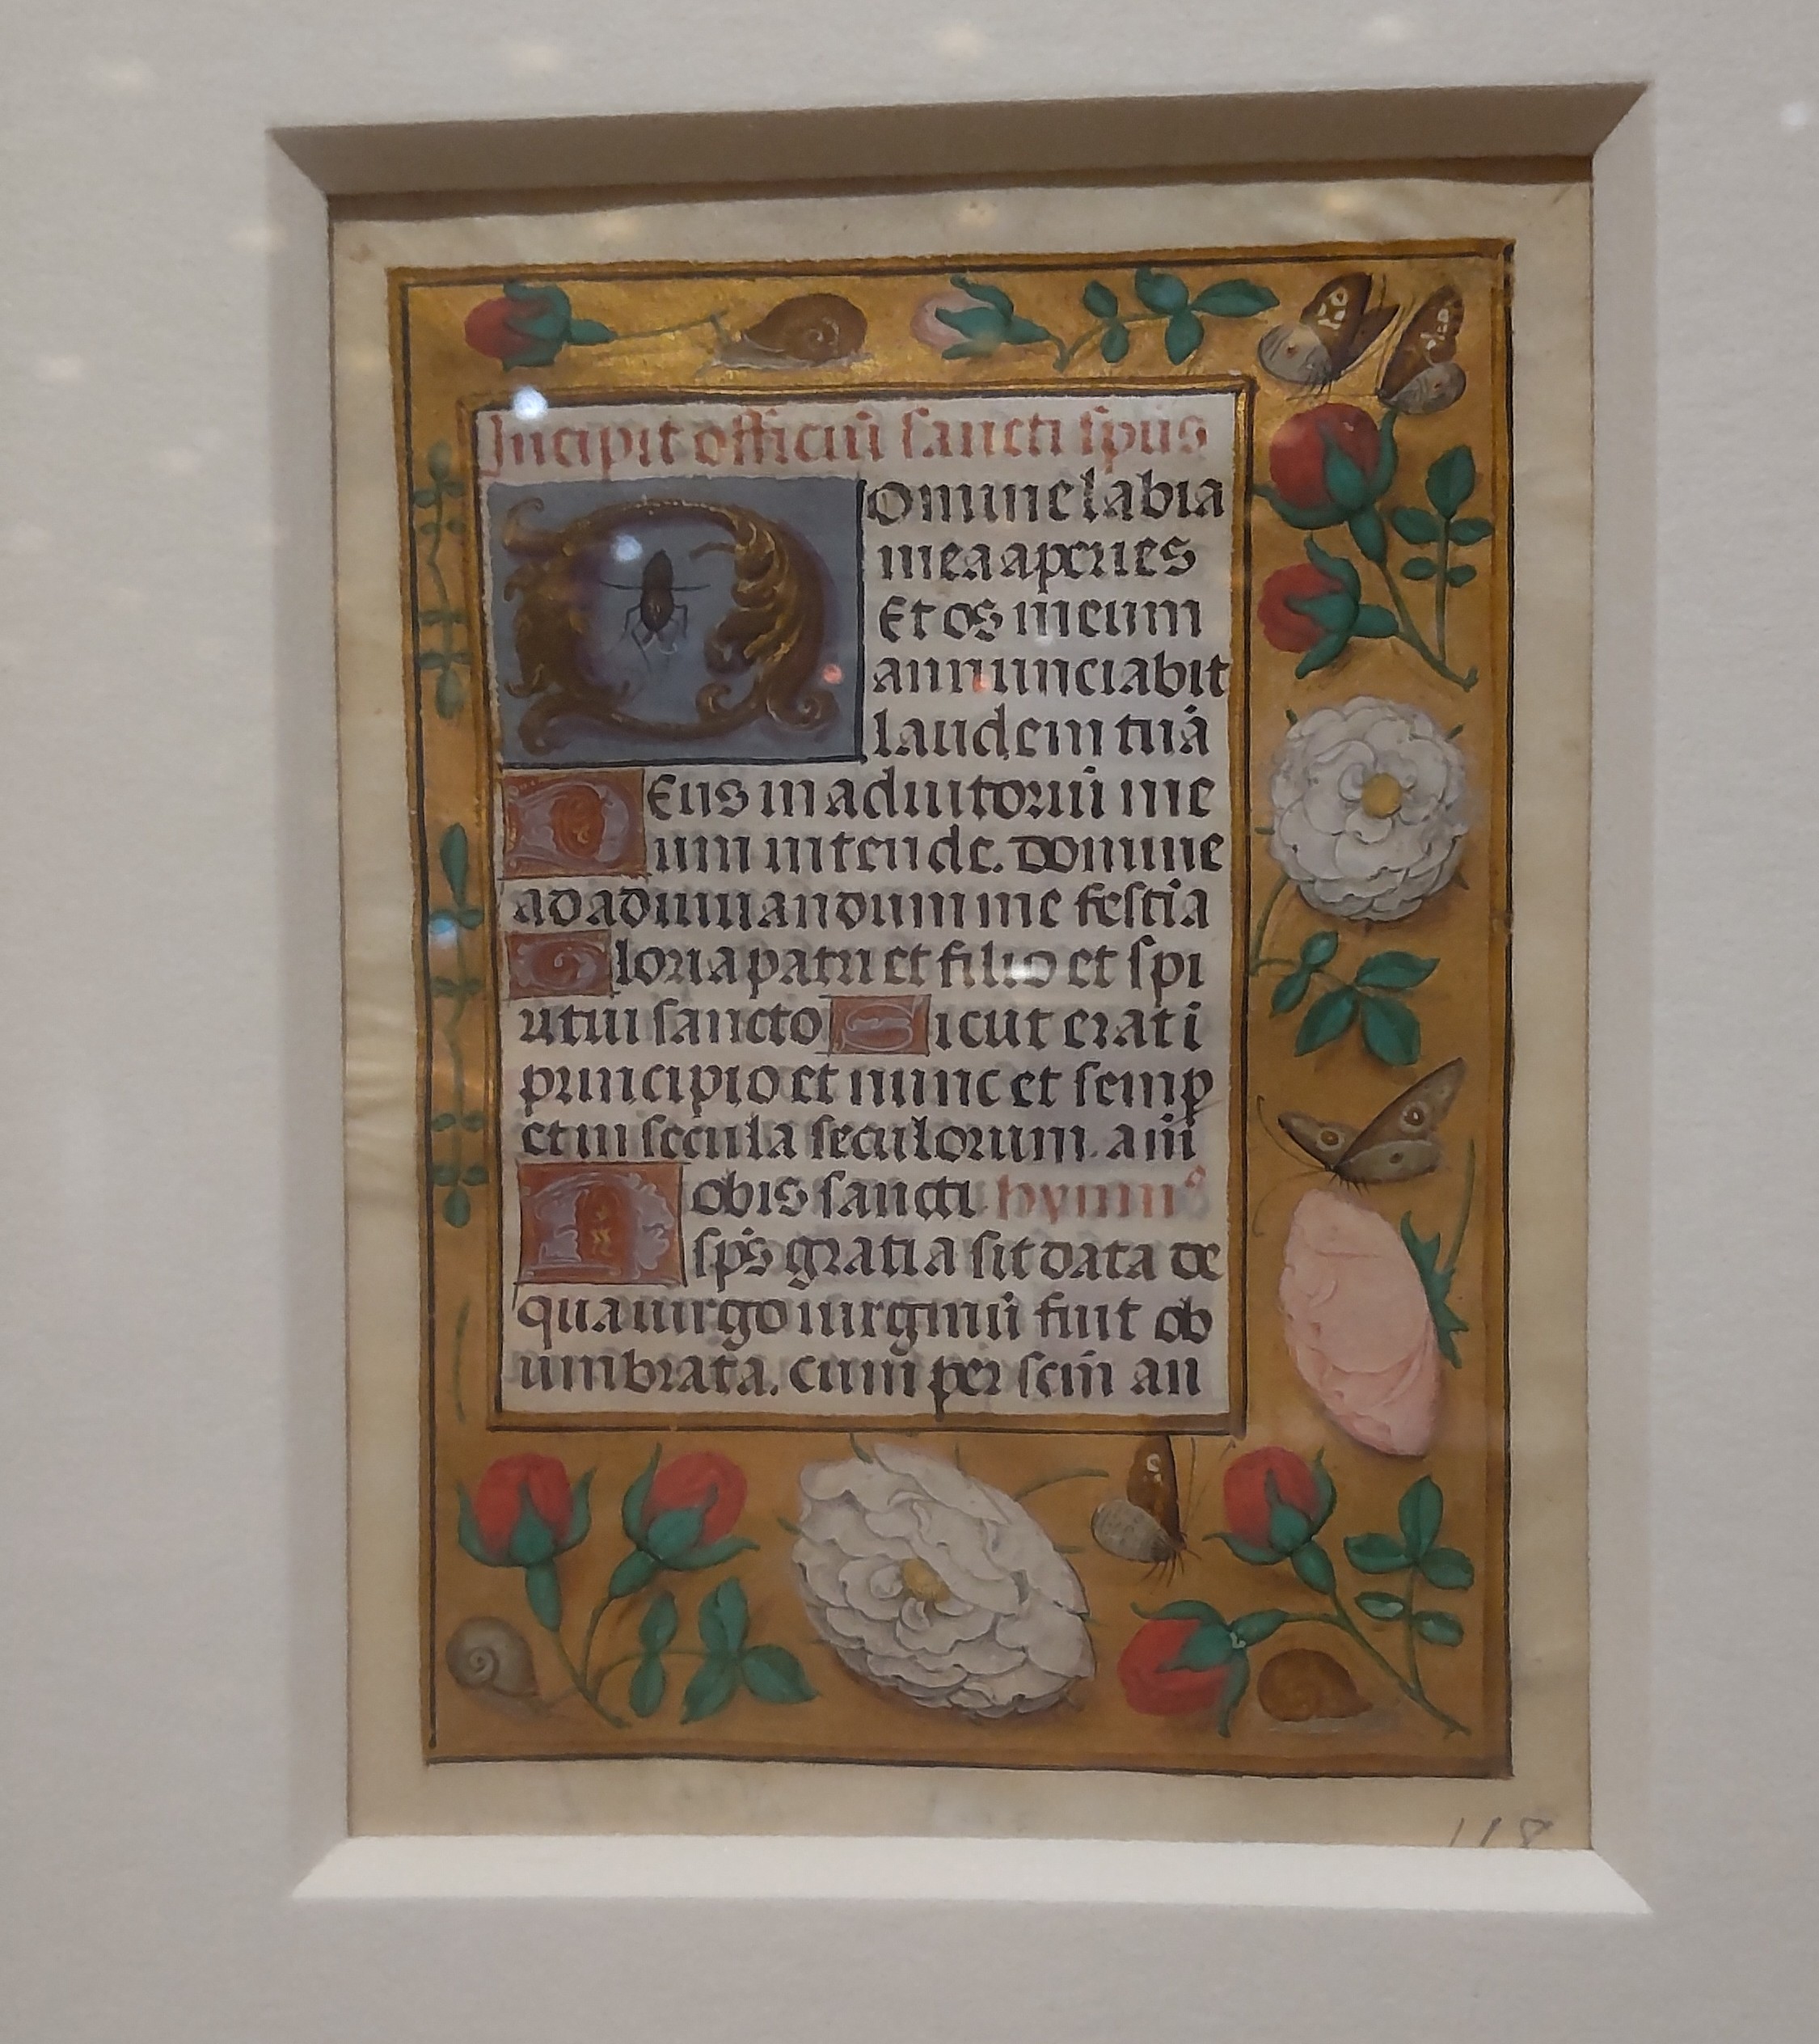 Incipit officiũ sancti sp̃us
Domine labia
mea aperies
Et os meum
annunciabit
laudem tuã
Deus in adiutoriũ me
um intende. Domine
ad adiuuandum me festĩa
Gloria patri et filio et spi
ritui sancto Sicut erat ĩ
principio et nunc et semp̱
et in secula seculorum. am̃
Nobis sancti hymnꝰ
sp̃s gratia sit data de
qua uirgo uirginũ fuit ob
umbrata. cum per sc̃m an
118